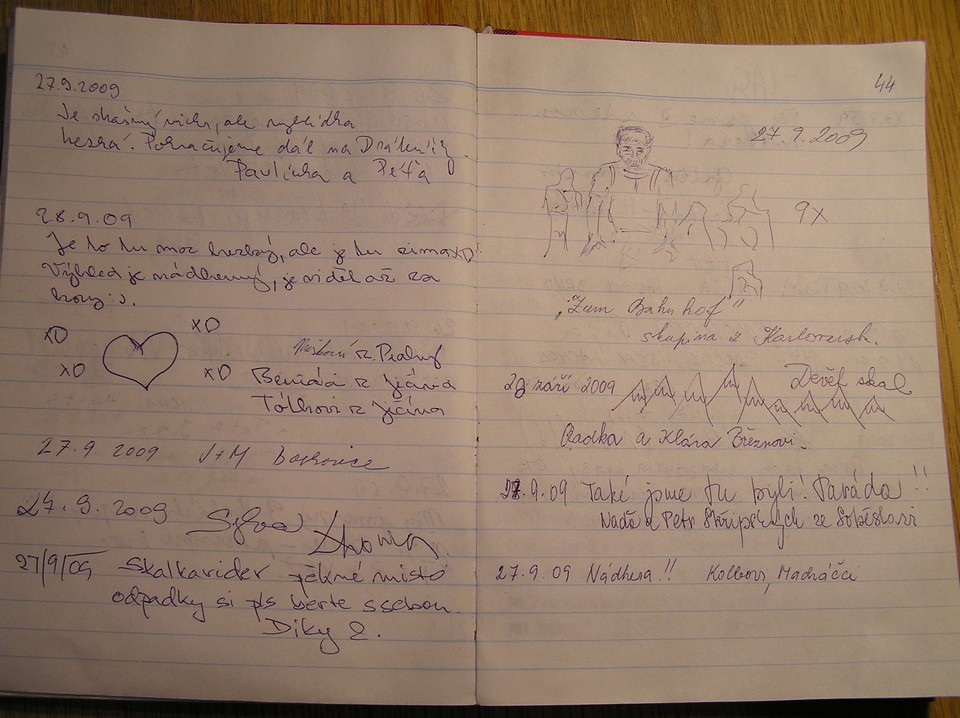 27.9.2009
Je strašný vichr, ale vyhlídka
hezká. Pokračujeme dál na
Pavlínka a Péťa
28.9.09
Je to tu moc hezký, ale je tu zima xD!
Výhled je nádherný, je vidět až za
hory :).
xD xD
xD xD
z
z Jičína
z Jičína
27.9 2009 J+M Boskovice
27.9.2009
27/9/09 Skalkarider pěkné místo
odpadky si pls berte s sebou
Díky 2.
44
27.9.2009
9x
"Zum Bahnhof"
skupina z
28 září 2009 Devět skal
Radka a Klára Březnovi.
27.9.09 Také jsme tu byli! Paráda!!
Naďa a Petr ze Soběslavi
27.9.09 Nádhera!! Kolbovi,